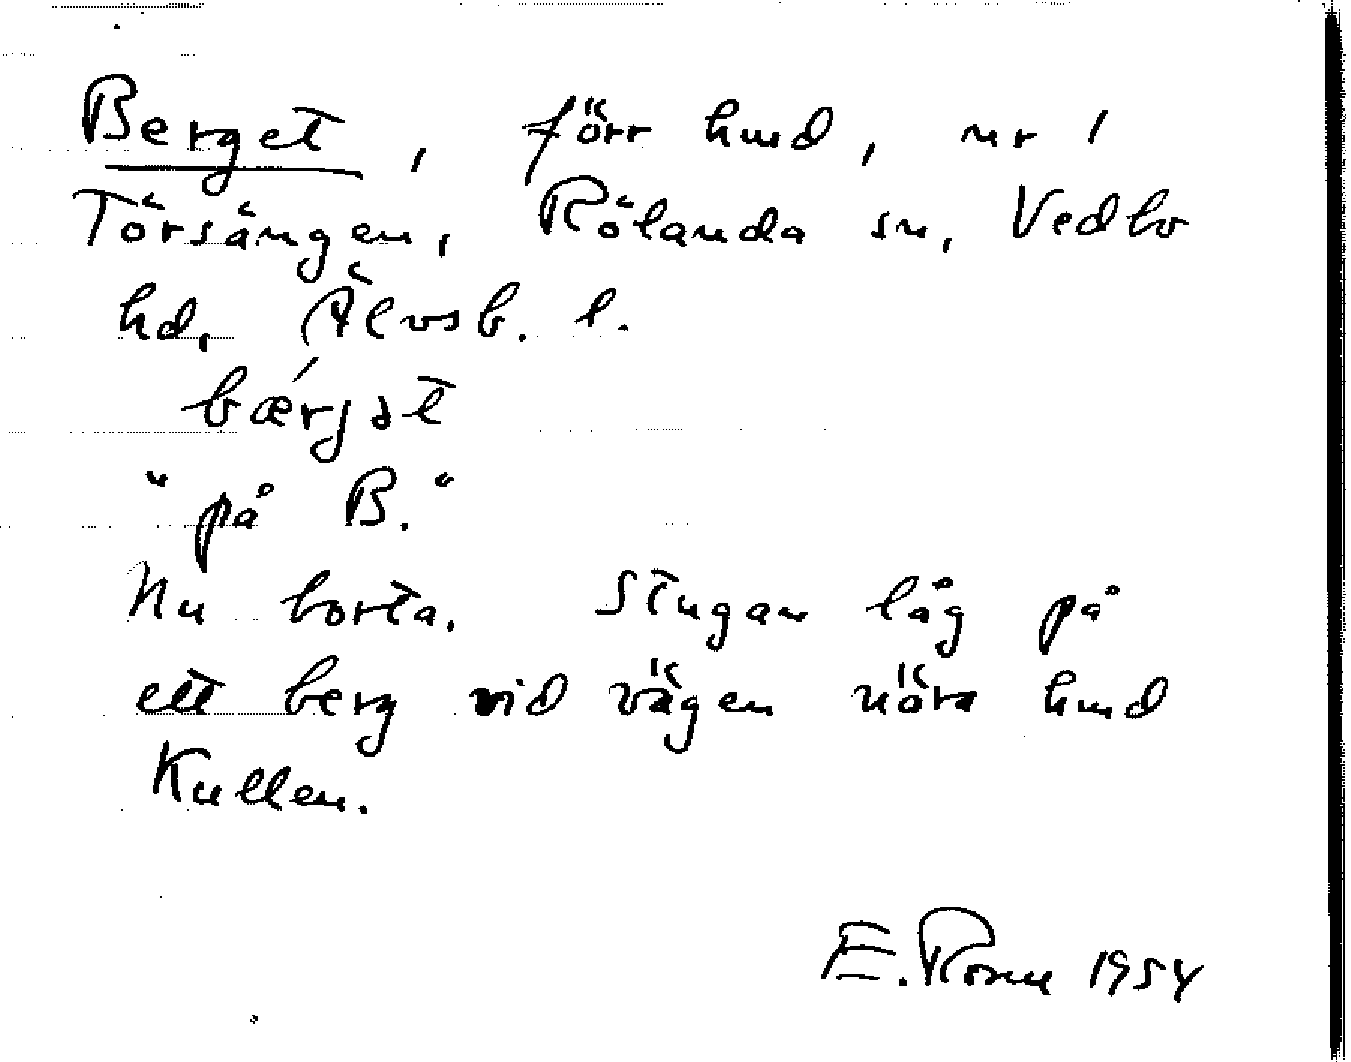 Berget, förr hmd, ur 1
Törsängen, Rölanda sn, Vedbo
hd, Älvsb. l.
bærjət
"på B."
Nu borta. Stugan låg på
ett berg vid vägen nära hmd
Kullen.
E. 1954